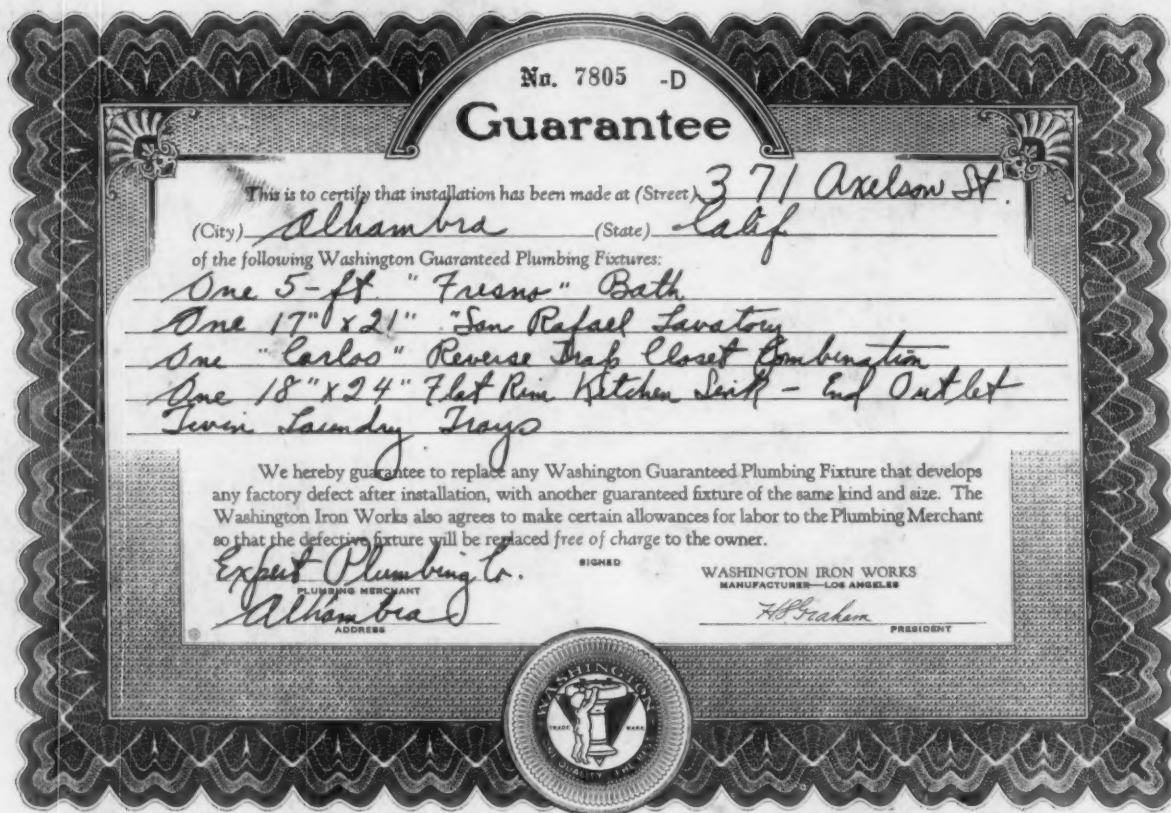 No. 7805 -D
Guarantee
This is to certify that installation has been made at (Street) 371 Axelson St.
(City) Alhambra (State) Calif
of the following Washington Guaranteed Plumbing Fixtures:
One 5-ft "Fresno" Bath
One 17" x 21" "San Rafael Lavatory
One "Carlos" Reverse Trap Closet Combination
One 18" x 24" Flat Rim Kitchen Sink - End Outlet
Twin Laundry Trays
We hereby guarantee to replace any Washington Guaranteed Plumbing Fixture that develops
any factory defect after installation, with another guaranteed fixture of the same kind and size. The
Washington Iron Works also agrees to make certain allowances for labor to the Plumbing Merchant
so that the defective fixture will be replaced free of charge to the owner.
Expert Plumbing Co.
PLUMBING MERCHANT
Alhambra
ADDRESS
SIGNED
WASHINGTON IRON WORKS
MANUFACTURER—LOS ANGELES
H B Graham
PRESIDENT
WASHINGTON
TRADE MARK
QUALITY THE